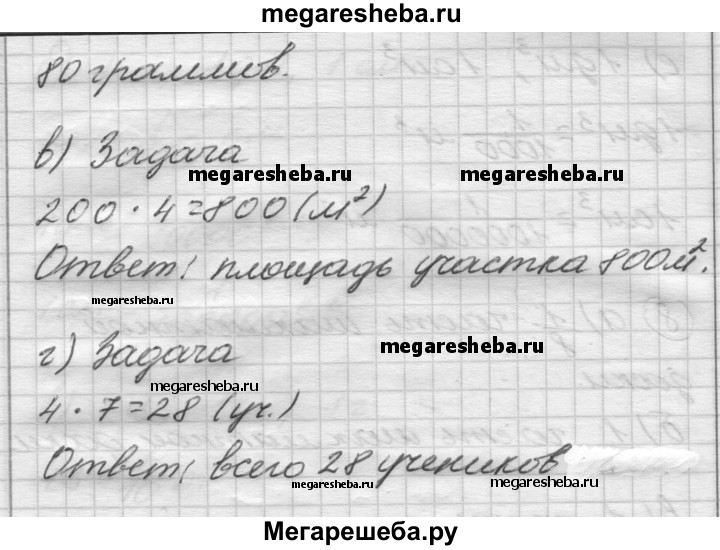 megaresheba.ru
80 граммов.
в) Задача
megaresheba.ru megaresheba.ru
200 · 4 = 800 (м²)
Ответ: площадь участка 800м².
megaresheba.ru
г) Задача
megaresheba.ru
megaresheba.ru
4 · 7 = 28 (уч.)
Ответ: всего 28 учеников
megaresheba.ru megaresheba.ru
Мегарешеба.ру